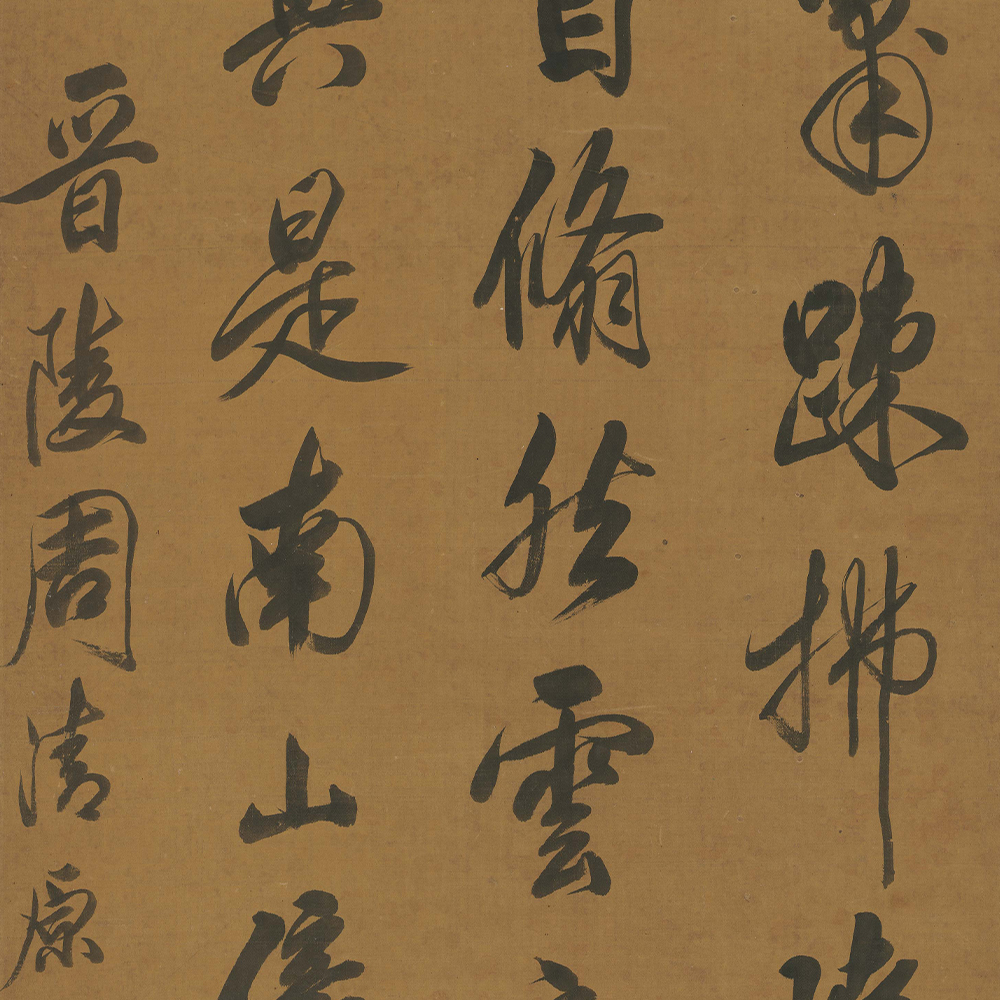 踈拂
自翛然雲
是南山
晉陵周清原